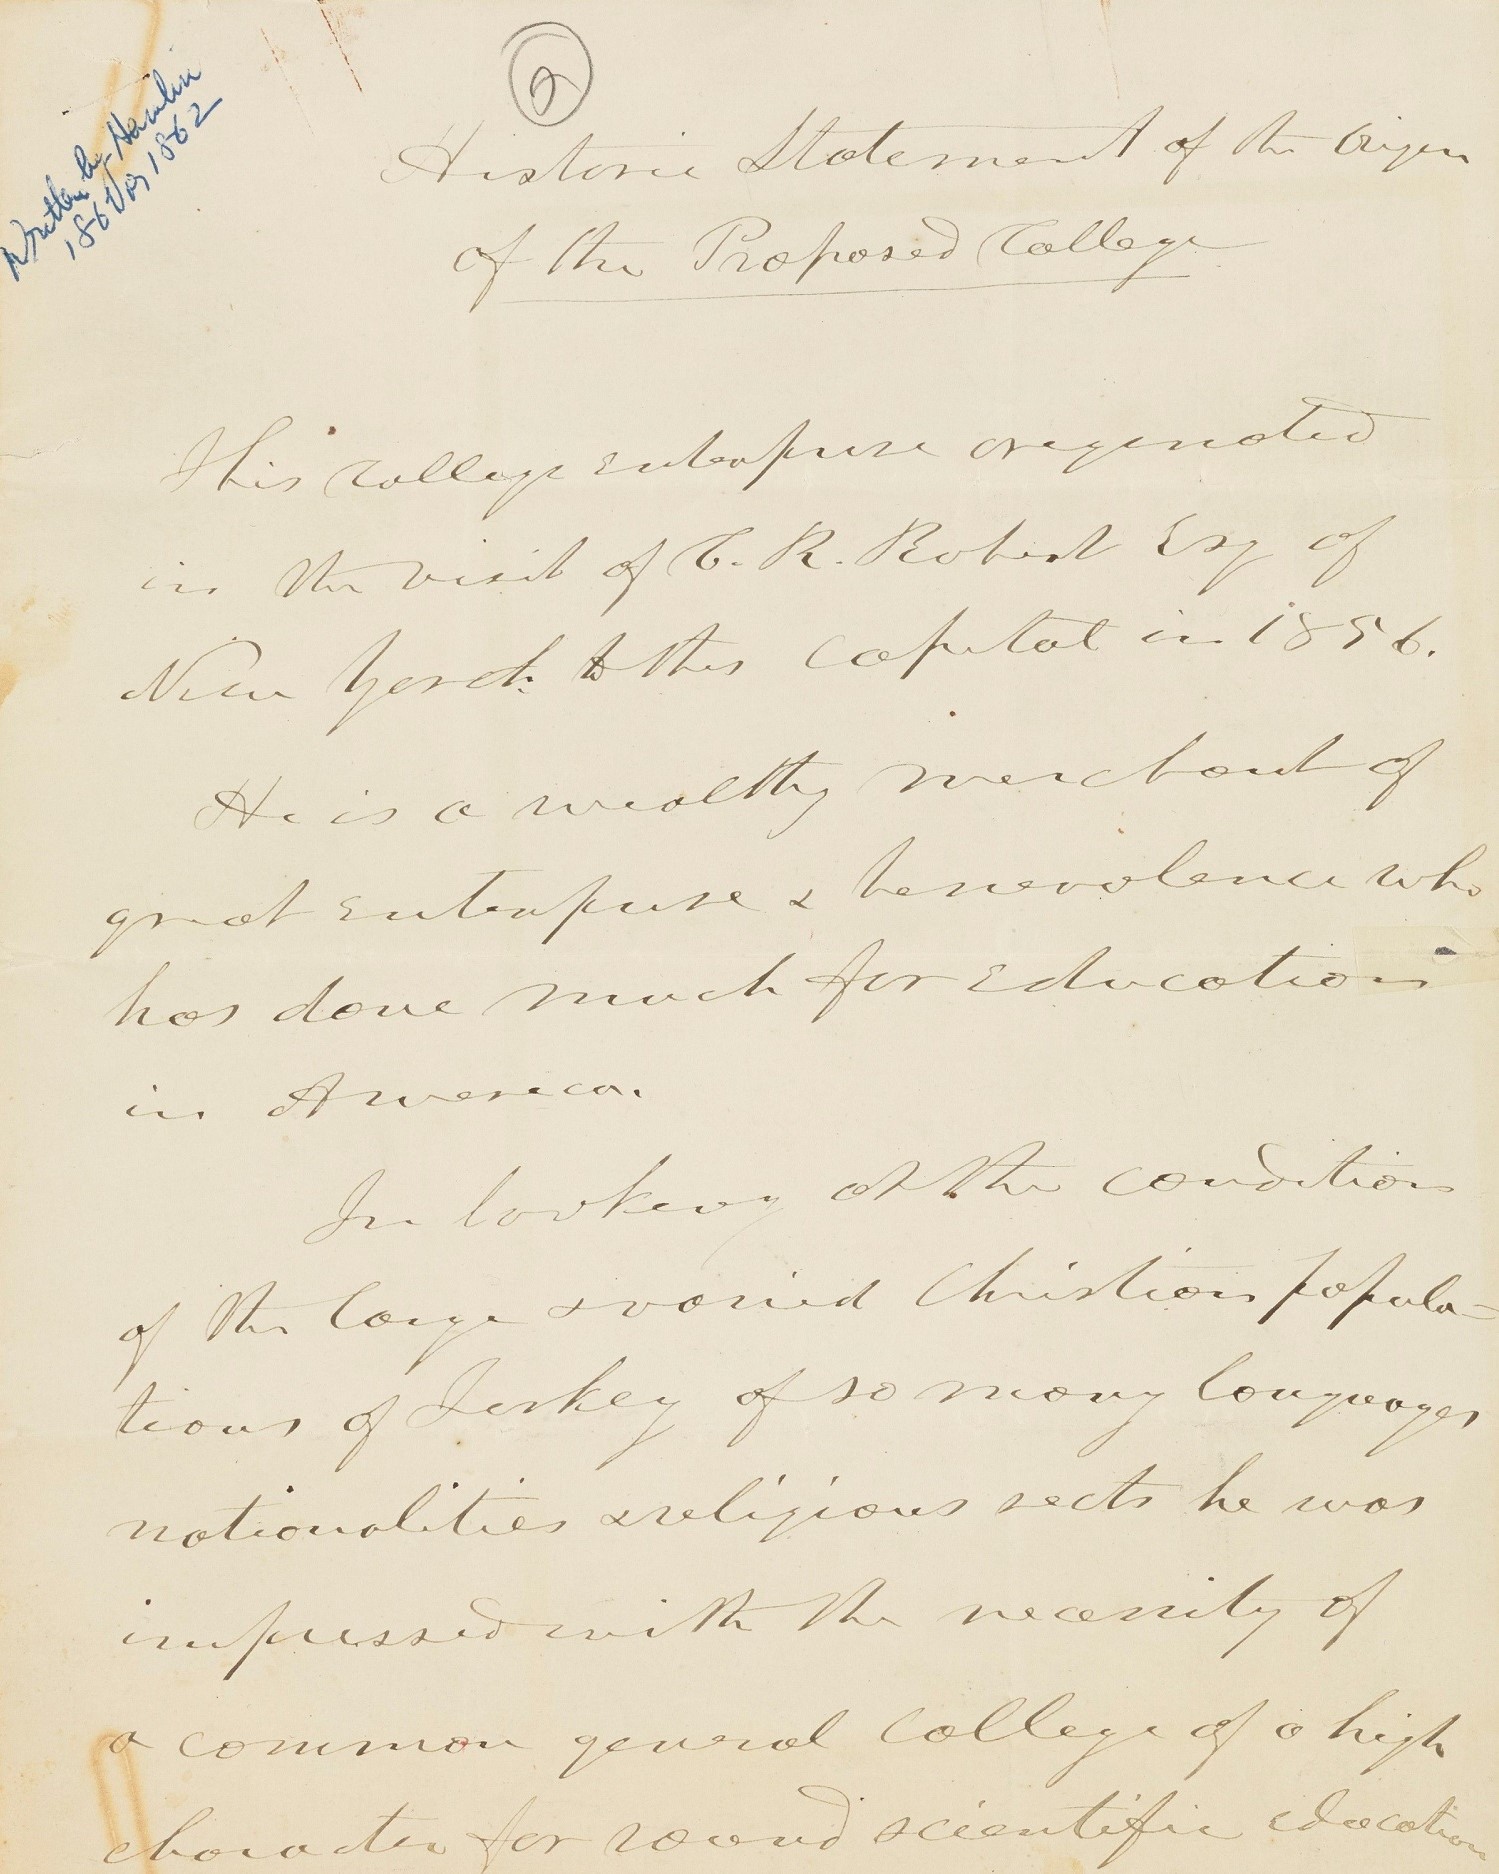 Written by Hamlin
1861 or 1862
2
Historic Statement of the Origin
of the Proposed College
This college enterprise originated
in the visit of C. R. Robert Esq of
New York to this capital in 1856.
He is a wealthy merchant of
great enterprise & benevolence who
has done much for education
in America.
In looking at the condition
of the large & varied Christian popula=
tions of Turkey of so many languages
nationalities & religious sects he was
impressed with the necessity of
a common general college of a high
character for sound scientific education